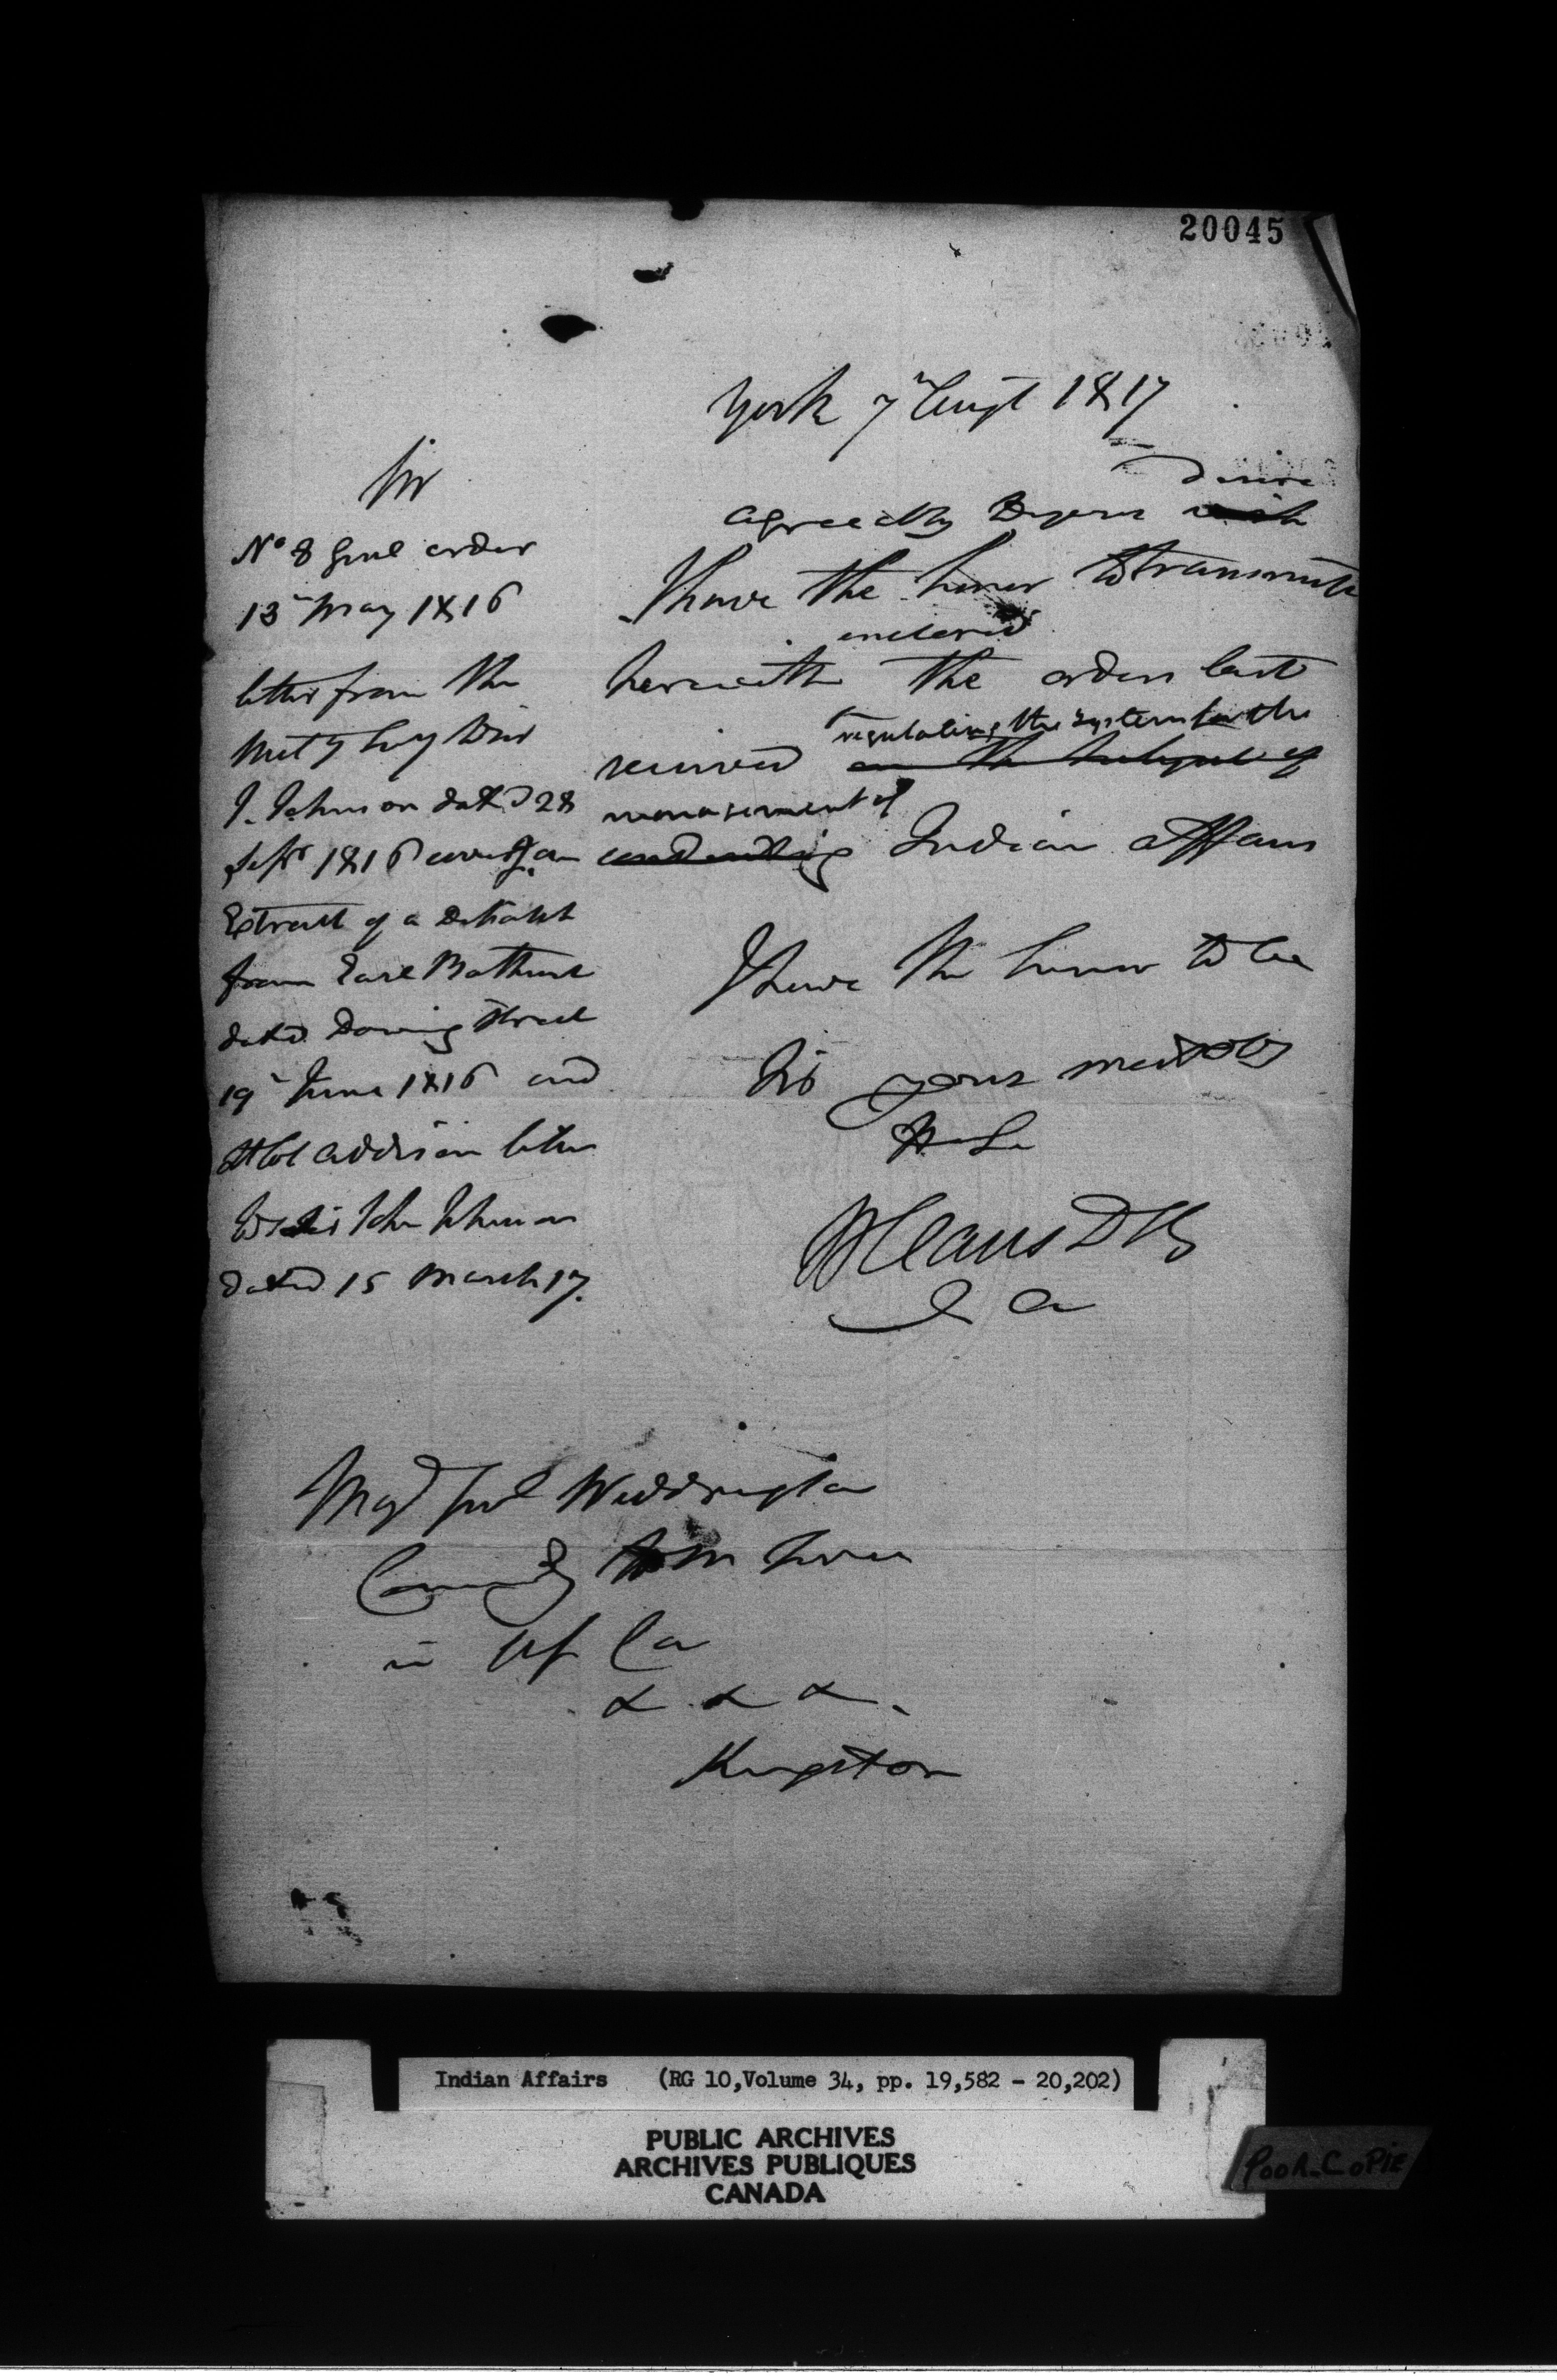 20045
York 7 Augt 1817
Sir
desire
agreeably to your wish
I have the honor to transmit
enclosed
herewith the orders last
regulating the system for the
received on the subject of
management of
conducting Indian Affairs
I have the honor to be
Sir your most ob
H Se
W Claus D S G
I A
No 8 Genl order
13 May 1816
letter from the
J. Johnson dated 28
Sept 1816 covering an
Extract of a Dispatch
from Earl Bathurst
dated Downing Street
19 June 1816 and
Col Addison letter
to Sir John Johnson
dated 15 March 17.
Majr Genl Widdrington
Commandg
in Up Ca
& & &
Kingston
Indian Affairs (RG 10, Volume 34, pp. 19,582 - 20,202)
PUBLIC ARCHIVES
ARCHIVES PUBLIQUES
CANADA
Poor Copie